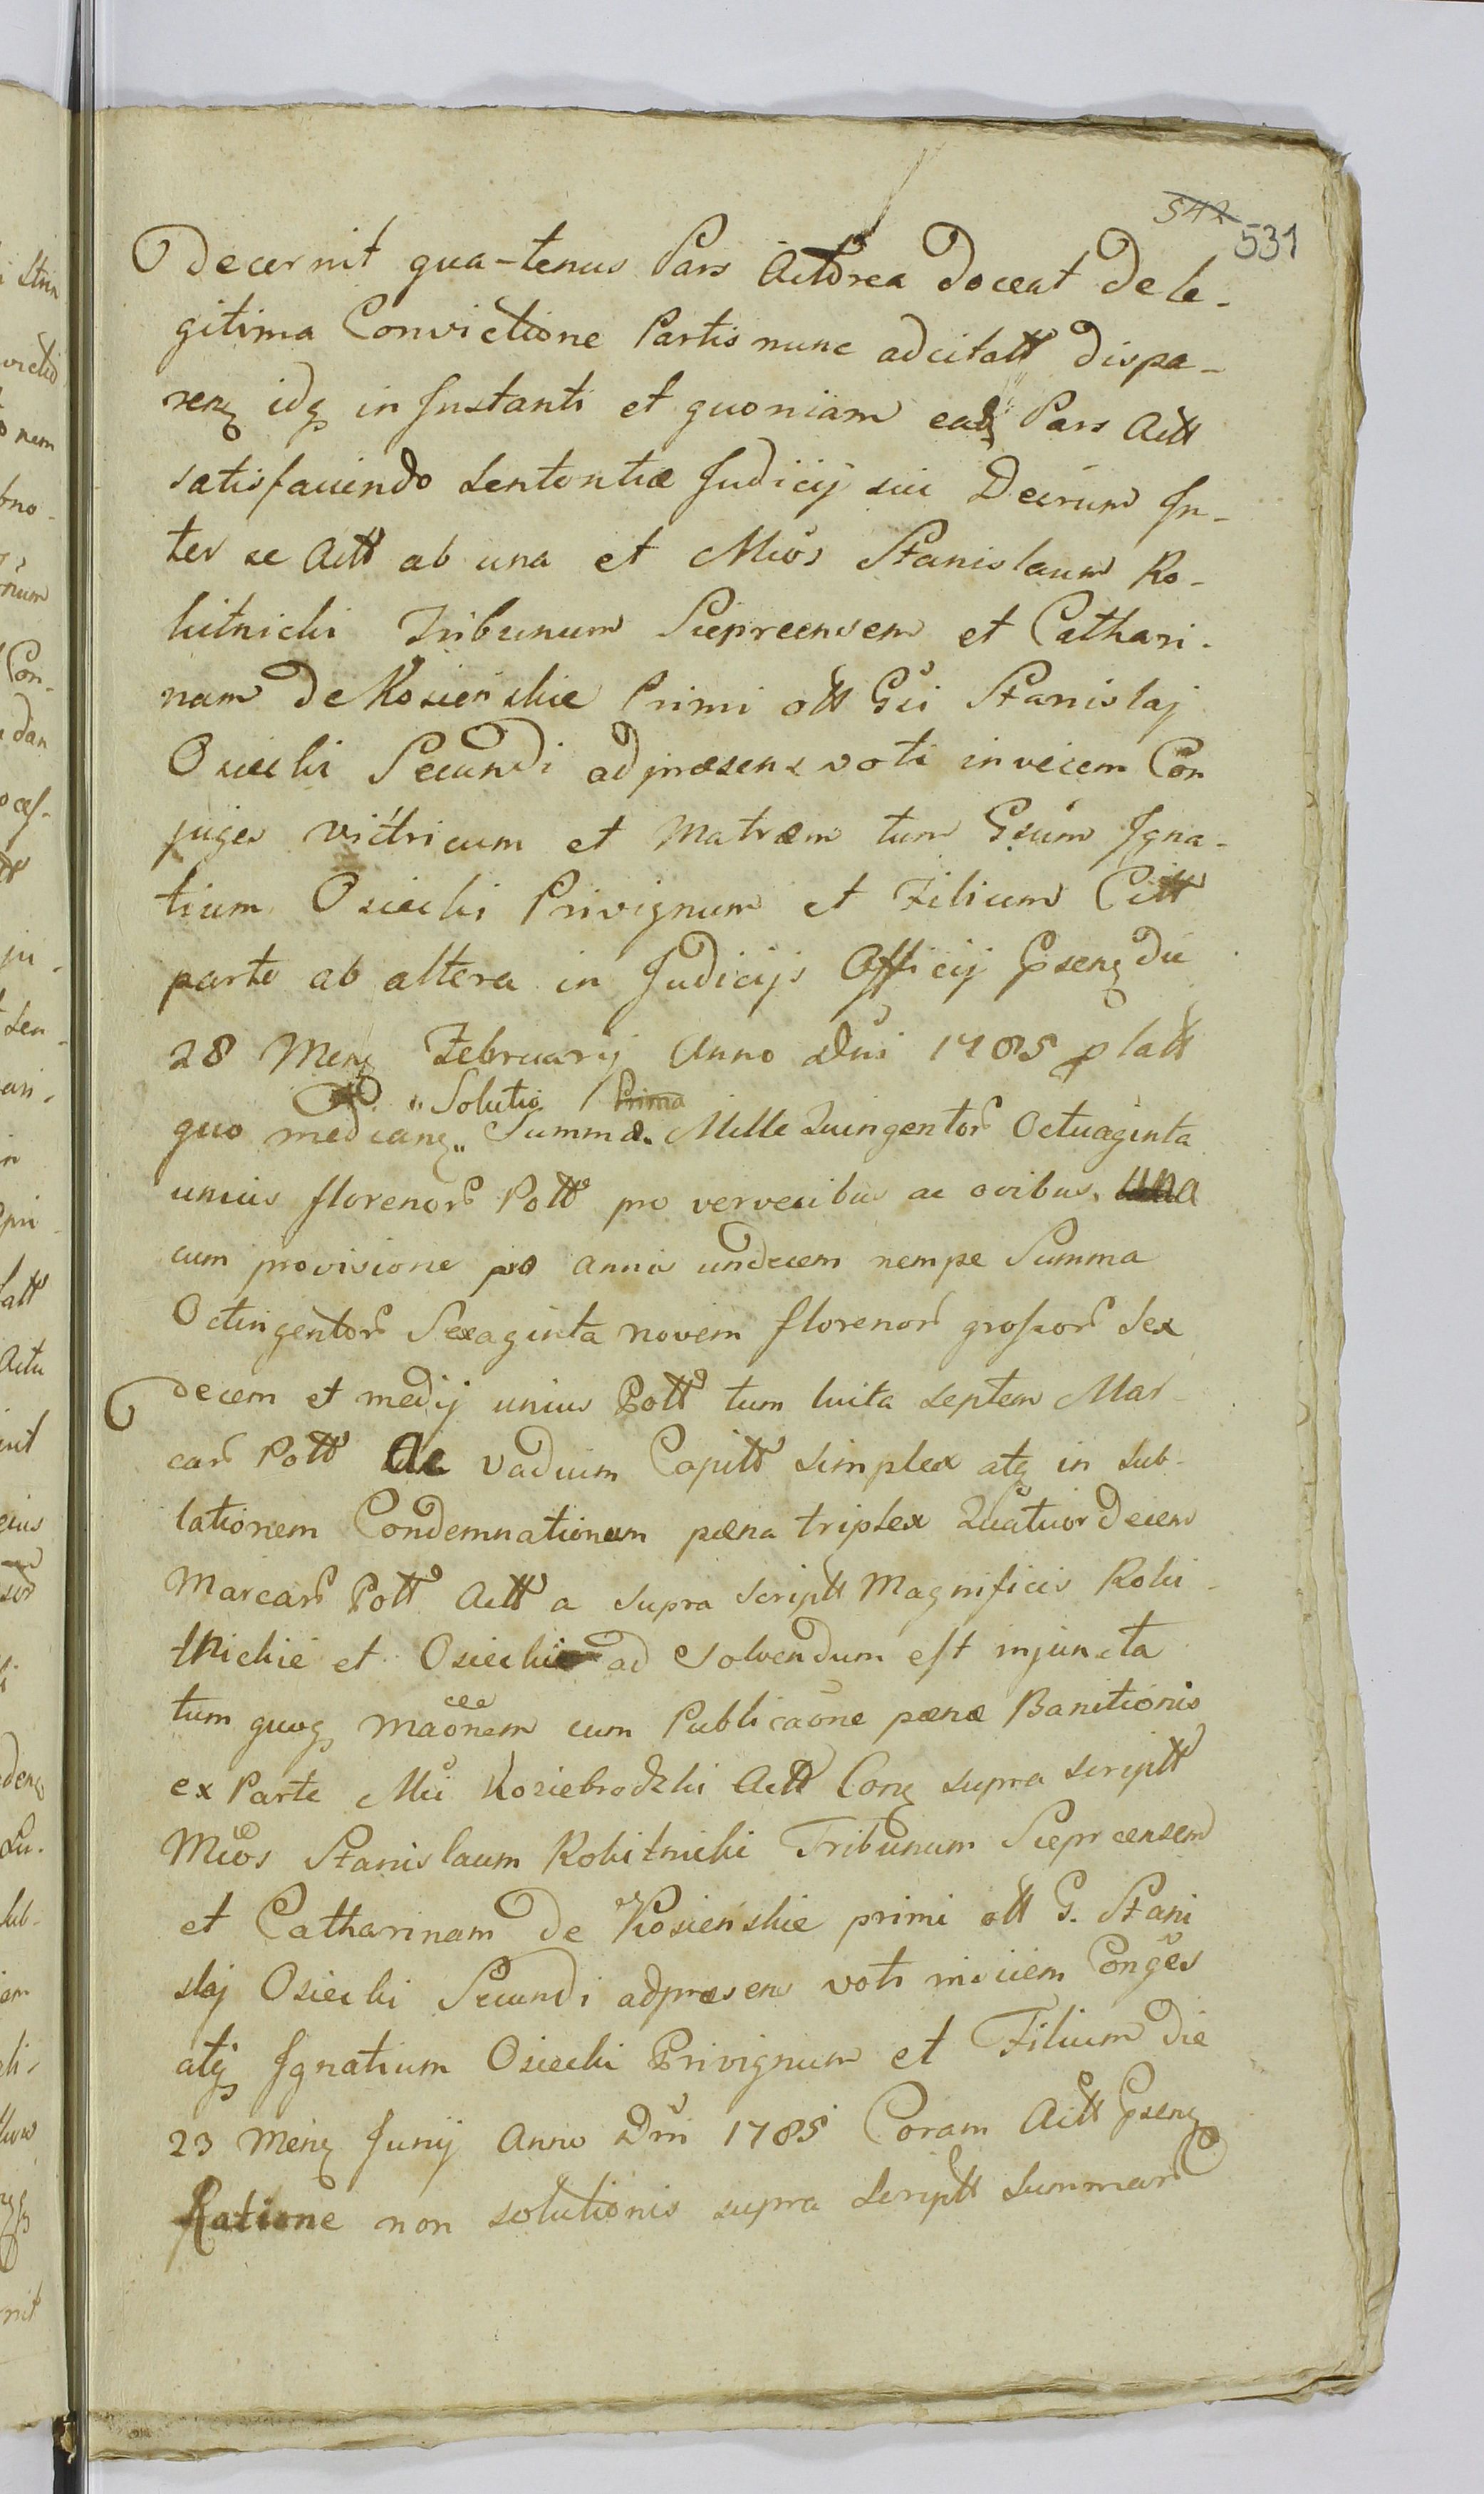 542 531
decernit qua-tenus Pars Actorea doceat de le-
gitima Convictione Partis nunc adcitatt dispa-
renz idq in Instanti et quoniam ead Pars Actt
satisfaciendo Sententiæ Judicij sui Decrum In-
ter se Actt ab una et Mcos Stanislaum Ro-
kitnicki Tribunum Sieprcensem et Cathari-
nam de Kosieńskie Primi ott Gsi Stanislaj
Osiecki Secundi adpræsens voti invicem Con
juges victricum et Matrem tum Gsum Igna-
tium Osiecki Privignum et Filium Citt
parte ab altera in Judicijs Officij Psenz die
28 Menz Februarij Anno Dni 1785 platt
quo medianz „ Solutio Summæ Mille Quingentor Octuaginta
unius florenor Pott pro vervecibus ac ovibus. una
cum provisione pro annis undecem nempe Summa
Octingentor Sexaginta novem florenor grossor Sex
decem et medij unius Pott tum luita septem Mar-
car Pott Ac vadium Capitt simplex atq in sub-
lationem Condemnationum pæna triplex Quatuordecem
Marcar Pott Actt a supra scriptt Magnificis Roki-
tnickie et Osiecki ad solvendum est injuncta
tum quoq maonem cum Publicaone pænæ Banitionis
ex Parte Mci Koziebrodzki Actt Conz supra scriptt
Mcos Stanislaum Rokitnicki Tribunum Sieprcensem
et Catharinam de Kosieńskie primi ott G. Stani
slaj Osiecki Secundi adpræsens voti invicem Conges
atq Ignatium Osiecki Privignum et Filium die
23 Menz Junij Anno Dni 1785 Coram Actt Psenz
Ratione non solutionis supra scriptt summar